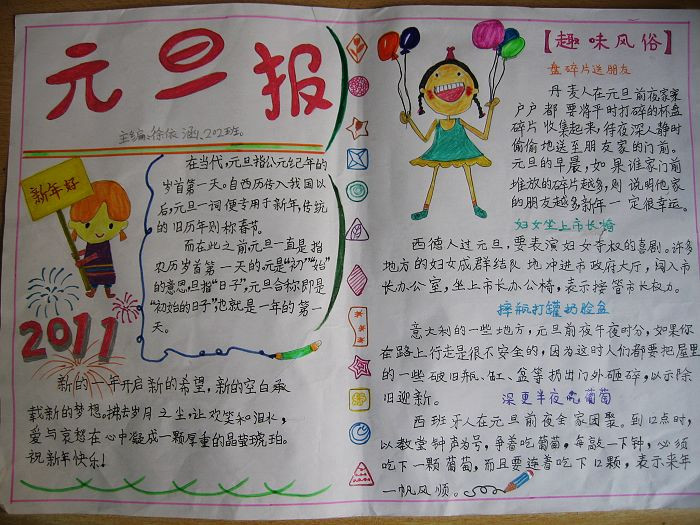 元旦报
主编:徐依涵、202班。
新年好
2011
在当代,元旦指公元纪年的
岁首第一天。自西历传入我国以
后,元旦一词便专用于新年,传统
的旧历年则称春节。
而在此之前元旦一直是指
农历岁首第一天的。元是“初”“始”
的意思,旦指“日子”,元旦合称即是
“初始的日子”,也就是一年的第一
天。
新的一年开启新的希望,新的空白承
载新的梦想。拂去岁月之尘,让欢笑和泪水,
爱与哀愁在心中凝成一颗厚重的晶莹琥珀。
祝新年快乐!
【趣味风俗】
盘碎片送朋友
丹麦人在元旦前夜家家
户户都要将平时打碎的杯盘
碎片收集起来,待夜深人静时
偷偷地送至朋友家的门前。
元旦的早晨,如果谁家门前
堆放的碎片越多,则说明他家
的朋友越多新年一定很幸运。
妇女坐上市长椅
西德人过元旦,要表演妇女夺权的喜剧。许多
地方的妇女成群结队地冲进市政府大厅,闯入市
长办公室,坐上市长办公椅,表示接管市长权力。
摔瓶打罐扔脸盆
意大利的一些地方,元旦前夜午夜时分,如果你
在路上行走是很不安全的,因为这时人们都要把屋里
的一些破旧瓶、缸、盆等扔出门外砸碎,以示除
旧迎新。
深更半夜吃葡萄
西班牙人在元旦前夜全家团聚。到12点时,
以教堂钟声为号,争着吃葡萄,每敲一下钟,必须
吃下一颗葡萄,而且要连着吃下12颗,表示来年
一帆风顺。